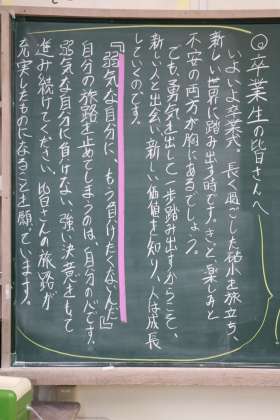 ◎卒業生の皆さんへ
いよいよ卒業式、長く過ごした砧小を旅立ち、
新しい世界に踏み出す時です。きっと、楽しみと
不安の両方が胸にあるでしょう。
でも、勇気を出して一歩踏み出すからこそ、
新しい人と出会い、新しい価値を知り、人は成長
していくのです。
『弱気な自分に、もう負けたくないんだ』
自分の旅路を止めてしまうのは、自分の心です。
弱気な自分に負けない、強い決意をもって
進み続けてください。皆さんの旅路が、
充実したものになることを願っています。